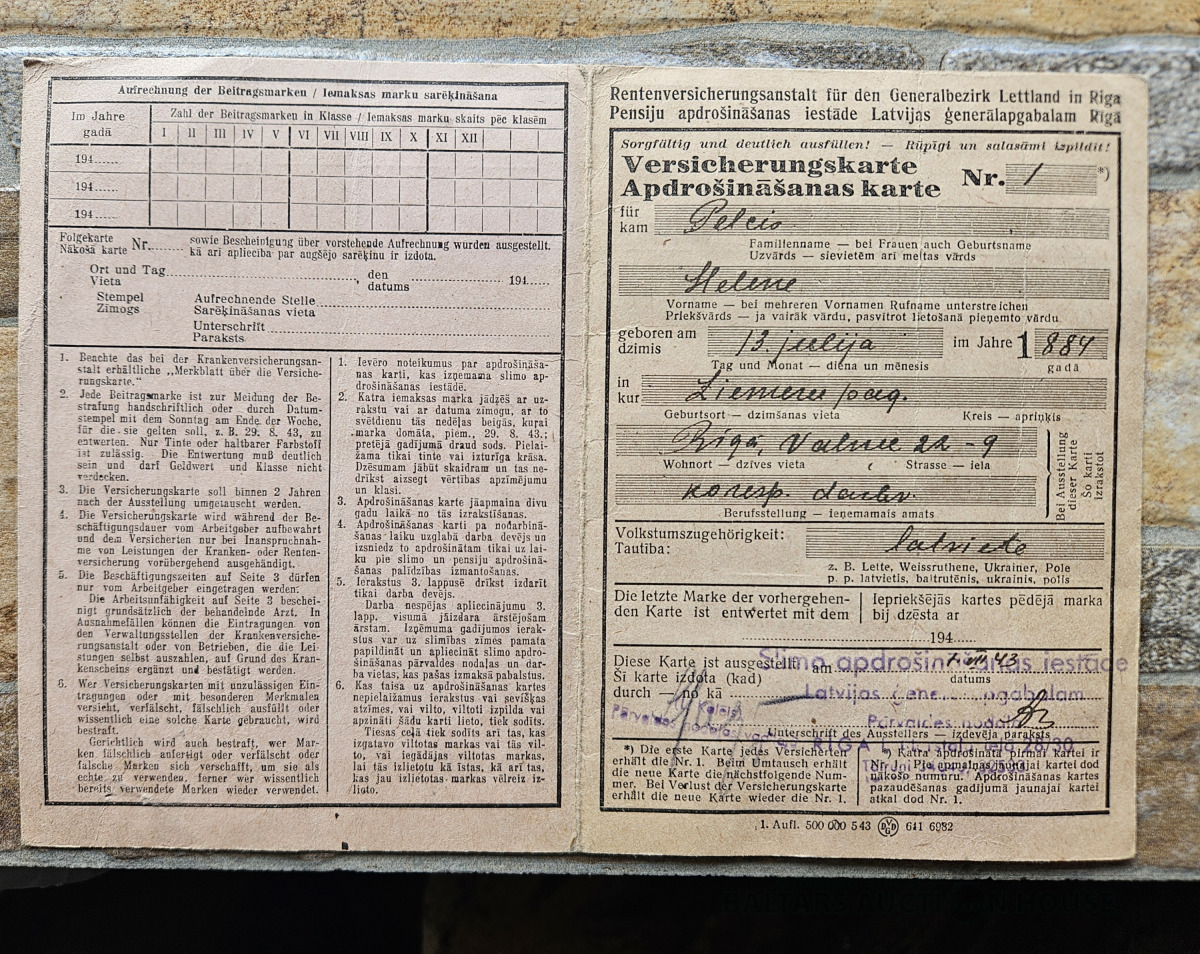 Aufrechnung der Beitragsmarken / Iemaksas marku sarēķināšana
Im Jahre
gadā
Zahl der Beitragsmarken in Klasse / Iemaksas marku skaits pēc klasēm
I II III IV V VI VII VIII IX X XI XII
194......
194......
194......
Folgekarte
Nākošā karte Nr.......
sowie Bescheinigung über vorstehende Aufrechnung wurden ausgestellt.
kā arī apliecība par augšējo sarēķinu ir izdota.
Ort und Tag
Vieta
den
datums
194......
Stempel
Zimogs
Aufrechnende Stelle
Sarēķināšanas vieta
Unterschrift
Paraksts
1. Beachte das bei der Krankenversicherungsan-
stalt erhältliche „Merkblatt über die Versiche-
rungskarte.“
2. Jede Beitragsmarke ist zur Meidung der Be-
strafung handschriftlich oder durch Datum-
stempel mit dem Sonntag am Ende der Woche,
für die sie gelten soll, z. B. 29. 8. 43, zu
entwerten. Nur Tinte oder haltbarer Farbstoff
ist zulässig. Die Entwertung muß deutlich
sein und darf Geldwert und Klasse nicht
verdecken.
3. Die Versicherungskarte soll binnen 2 Jahren
nach der Ausstellung umgetauscht werden.
4. Die Versicherungskarte wird während der Be-
schäftigungsdauer vom Arbeitgeber aufbewahrt
und dem Versicherten nur bei Inanspruchnah-
me von Leistungen der Kranken- oder Renten-
versicherung vorübergehend ausgehändigt.
5. Die Beschäftigungszeiten auf Seite 3 dürfen
nur vom Arbeitgeber eingetragen werden.
Die Arbeitsunfähigkeit auf Seite 3 beschei-
nigt grundsätzlich der behandelnde Arzt. In
Ausnahmefällen können die Eintragungen von
den Verwaltungsstellen der Krankenversiche-
rungsanstalt oder von Betrieben, die die Lei-
stungen selbst auszahlen, auf Grund des Kran-
kenscheins ergänzt und bestätigt werden.
6. Wer Versicherungskarten mit unzulässigen Ein-
tragungen oder mit besonderen Merkmalen
versieht, verfälscht, fälschlich ausfüllt oder
wissentlich eine solche Karte gebraucht, wird
bestraft.
Gerichtlich wird auch bestraft, wer Mar-
ken fälschlich anfertigt oder verfälscht oder
falsche Marken sich verschafft, um sie als
echte zu verwenden, ferner wer wissentlich
bereits verwendete Marken wieder verwendet.
1. Ievēro noteikumus par apdrošināša-
nas karti, kas izņemama slimo ap-
drošināšanas iestādē.
2. Katra iemaksas marka jādzēš ar uz-
rakstu vai ar datuma zimogu, ar to
svētdienu tās nedēļas beigās, kurai
marka domāta, piem., 29. 8. 43.;
pretējā gadījumā draud sods. Pielai-
žama tikai tinte vai izturīga krāsa.
Dzēsumam jābūt skaidram un tas ne-
drīkst aizsegt vērtības apzīmējumu
un klasi.
3. Apdrošināšanas karte jāapmaina divu
gadu laikā no tās izrakstīšanas.
4. Apdrošināšanas karti pa nodarbinā-
šanas laiku uzglabā darba devējs un
izsniedz to apdrošinātam tikai uz lai-
ku pie slimo un pensiju apdrošinā-
šanas palīdzības izmantošanas.
5. Ierakstus 3. lappusē drīkst izdarīt
tikai darba devējs.
Darba nespējas apliecinājumu 3.
lapp. visumā jāizdara ārstējošam
ārstam. Izņēmuma gadījumos ierak-
stus var uz slimības zīmes pamata
papildināt un apliecināt slimo apdro-
šināšanas pārvaldes nodaļas un dar-
ba vietas, kas pašas izmaksā pabalstus.
6. Kas taisa uz apdrošināšanas kartes
nepielaižamus ierakstus vai sevišķas
atzīmes, vai vilto, viltoti izpilda vai
apzināti šādu karti lieto, tiek sodīts.
Tiesas ceļā tiek sodīts arī tas, kas
izgatavo viltotas markas vai tās vil-
to, vai iegādājas viltotas markas,
lai tās izlietotu kā īstas, kā arī tas,
kas jau izlietotas markas vēlreiz iz-
lieto.
Rentenversicherungsanstalt für den Generalbezirk Lettland in Riga
Pensiju apdrošināšanas iestāde Latvijas ģenerālapgabalam Rīgā
Sorgfältig und deutlich ausfüllen! — Rūpīgi un salasāmi izpildīt!
Versicherungskarte
Apdrošināšanas karte
Nr. 1 *)
für
kam Pelcis
Familienname — bei Frauen auch Geburtsname
Uzvārds — sievietēm arī meitas vārds
Helene
Vorname — bei mehreren Vornamen Rufname unterstreichen
Priekšvārds — ja vairāk vārdu, pasvītrot lietošanā pieņemto vārdu
geboren am
dzimis 13. julija im Jahre 1 884
Tag und Monat — diena un mēnesis gadā
in
kur Ziemeru pag.
Geburtsort — dzimšanas vieta Kreis — apriņķis
Rīgā, Valmie 22 - 9
Wohnort — dzīves vieta Strasse — iela
koresp. darbv.
Berufsstellung — ieņemamais amats
Bei Ausstellung
dieser Karte
Šo karti
izrakstot
Volkstumszugehörigkeit:
Tautiba: latviete
z. B. Lette, Weissruthene, Ukrainer, Pole
p. p. latvietis, baltrutēnis, ukrainis, polis
Die letzte Marke der vorhergehen-
den Karte ist entwertet mit dem
Iepriekšējās kartes pēdējā marka
bij dzēsta ar
194......
Diese Karte ist ausgestellt am 1. VII 43
Ši karte izdota (kad) datums
durch — no kā
Slimo apdrošināšanas iestāde
Latvijas ģene
Pārvaldes nodaļa
Unterschrift des Ausstellers — izdevēja paraksts
*) Die erste Karte jedes Versicherten
erhält die Nr. 1. Beim Umtausch erhält
die neue Karte die nächstfolgende Num-
mer. Bei Verlust der Versicherungskarte
erhält die neue Karte wieder die Nr. 1.
*) Katra apdrošinātā pirmai kartei ir
Nr. 1. Pie apmaiņas jaunajai kartei dod
nākošo numuru. Apdrošināšanas kartes
pazaudēšanas gadījumā jaunajai kartei
atkal dod Nr. 1.
1. Aufl. 500 000 5 43 641 6982
BALTARS AUCTION HOUSE